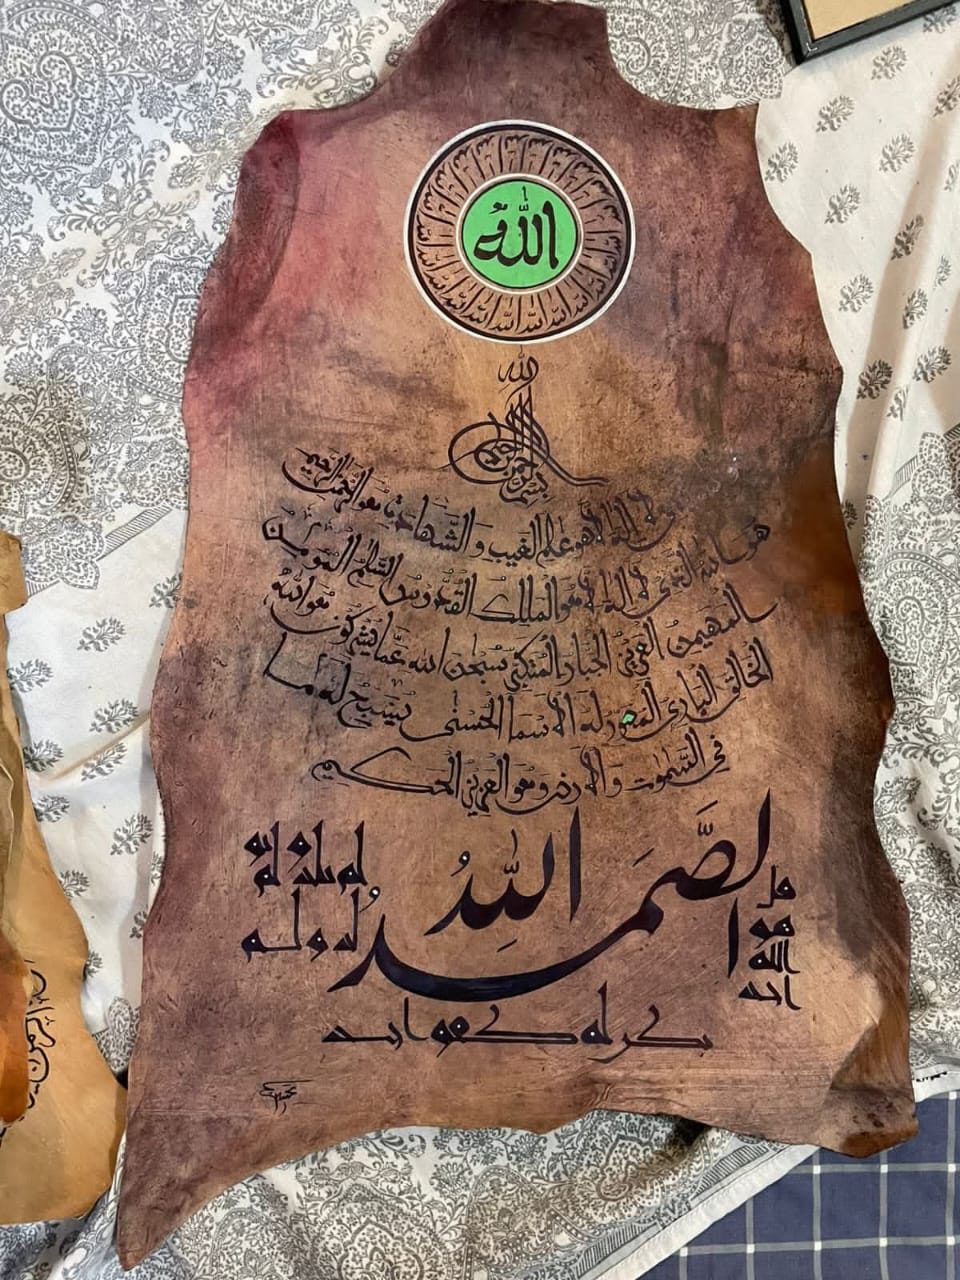 اللهُ
بسم الله الرحمن الرحيم
لا اله الا هو علم الغيب و الشهادة هو الرحمن الرحيم
هو الله الذى لا اله الا هو الملك القدوس السلم المومن
المهيمن العزيز الجبار المتكبر سبحن الله عما يشركون هو الله
الخالق البارئ المصور له الاسما الحسنى يسبح له ما
فى السموت و الارض و هو العزيز الحكيم
قل
هو
الله
احد
اللهُ الصَّمَدُ
لم يلد و لم
يولد و لم
يكن له كفوا احد